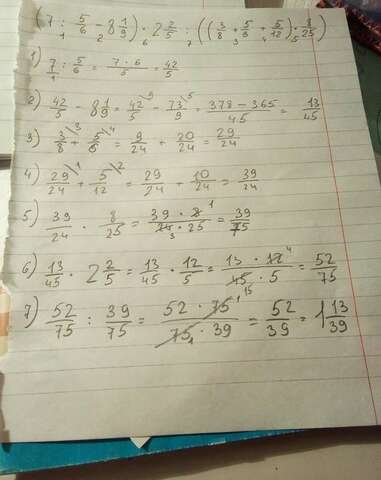 (7 : 5/6 - 8 1/9) · 2 2/5 : ((3/8 + 5/6 + 5/12) · 8/25)
1 2 6 7 3 4 5
1) 7/1 : 5/6 = 7 · 6/5 = 42/5
2) 42/5 - 8 1/9 = 42/5 \9 - 73/9 \5 = 378 - 365/45 = 13/45
3) 3/8 \3 + 5/6 \4 = 9/24 + 20/24 = 29/24
4) 29/24 \1 + 5/12 \2 = 29/24 + 10/24 = 39/24
5) 39/24 · 8/25 = 39 · 8 1/24 3 · 25 = 39/75
6) 13/45 · 2 2/5 = 13/45 · 12/5 = 13 · 12 4/45 15 · 5 = 52/75
7) 52/75 : 39/75 = 52 · 75 1/75 1 · 39 = 52/39 = 1 13/39